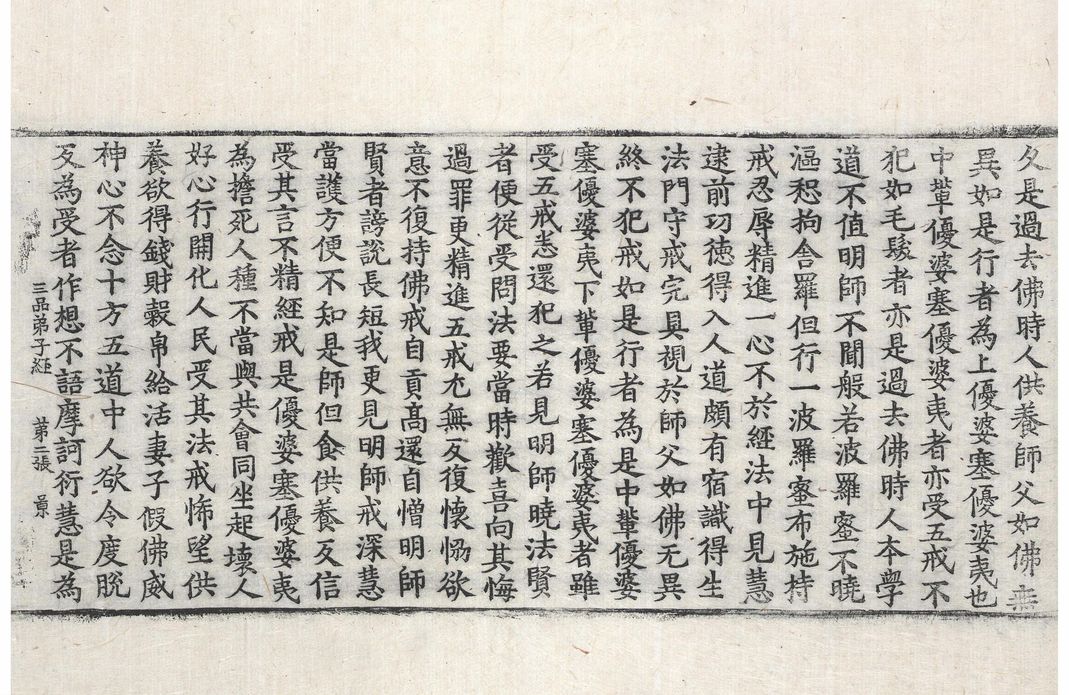 久是過去佛時人供養師父如佛無
異如是行者為上優婆塞優婆夷也
中輩優婆塞優婆夷者亦受五戒不
犯如毛髮者亦是過去佛時人本學
道不值明師不聞般若波羅蜜不曉
漚惒拘舍羅但行一波羅蜜布施持
戒忍辱精進一心不於經法中見慧
逮前功德得入人道頗有宿識得生
法門守戒完具視於師父如佛无異
終不犯戒如是行者為是中輩優婆
塞優婆夷下輩優婆塞優婆夷者雖
受五戒恚還犯之若見明師曉法賢
者便從受問法要當時歡喜向其悔
過罪更精進五戒尤無反復懷惱欲
意不復持佛戒自貢高還自憎明師
賢者謗說長短我更見明師戒深慧
當護方便不知是師但食供養反信
受其言不精經戒是優婆塞優婆夷
為擔死人種不當與共會同坐起壞人
好心行開化人民受其法戒悕望供
養欲得錢財穀帛給活妻子假佛威
神心不念十方五道中人欲令度脫
反為受者作想不語摩訶衍慧是為
三品弟子經 第二張 景